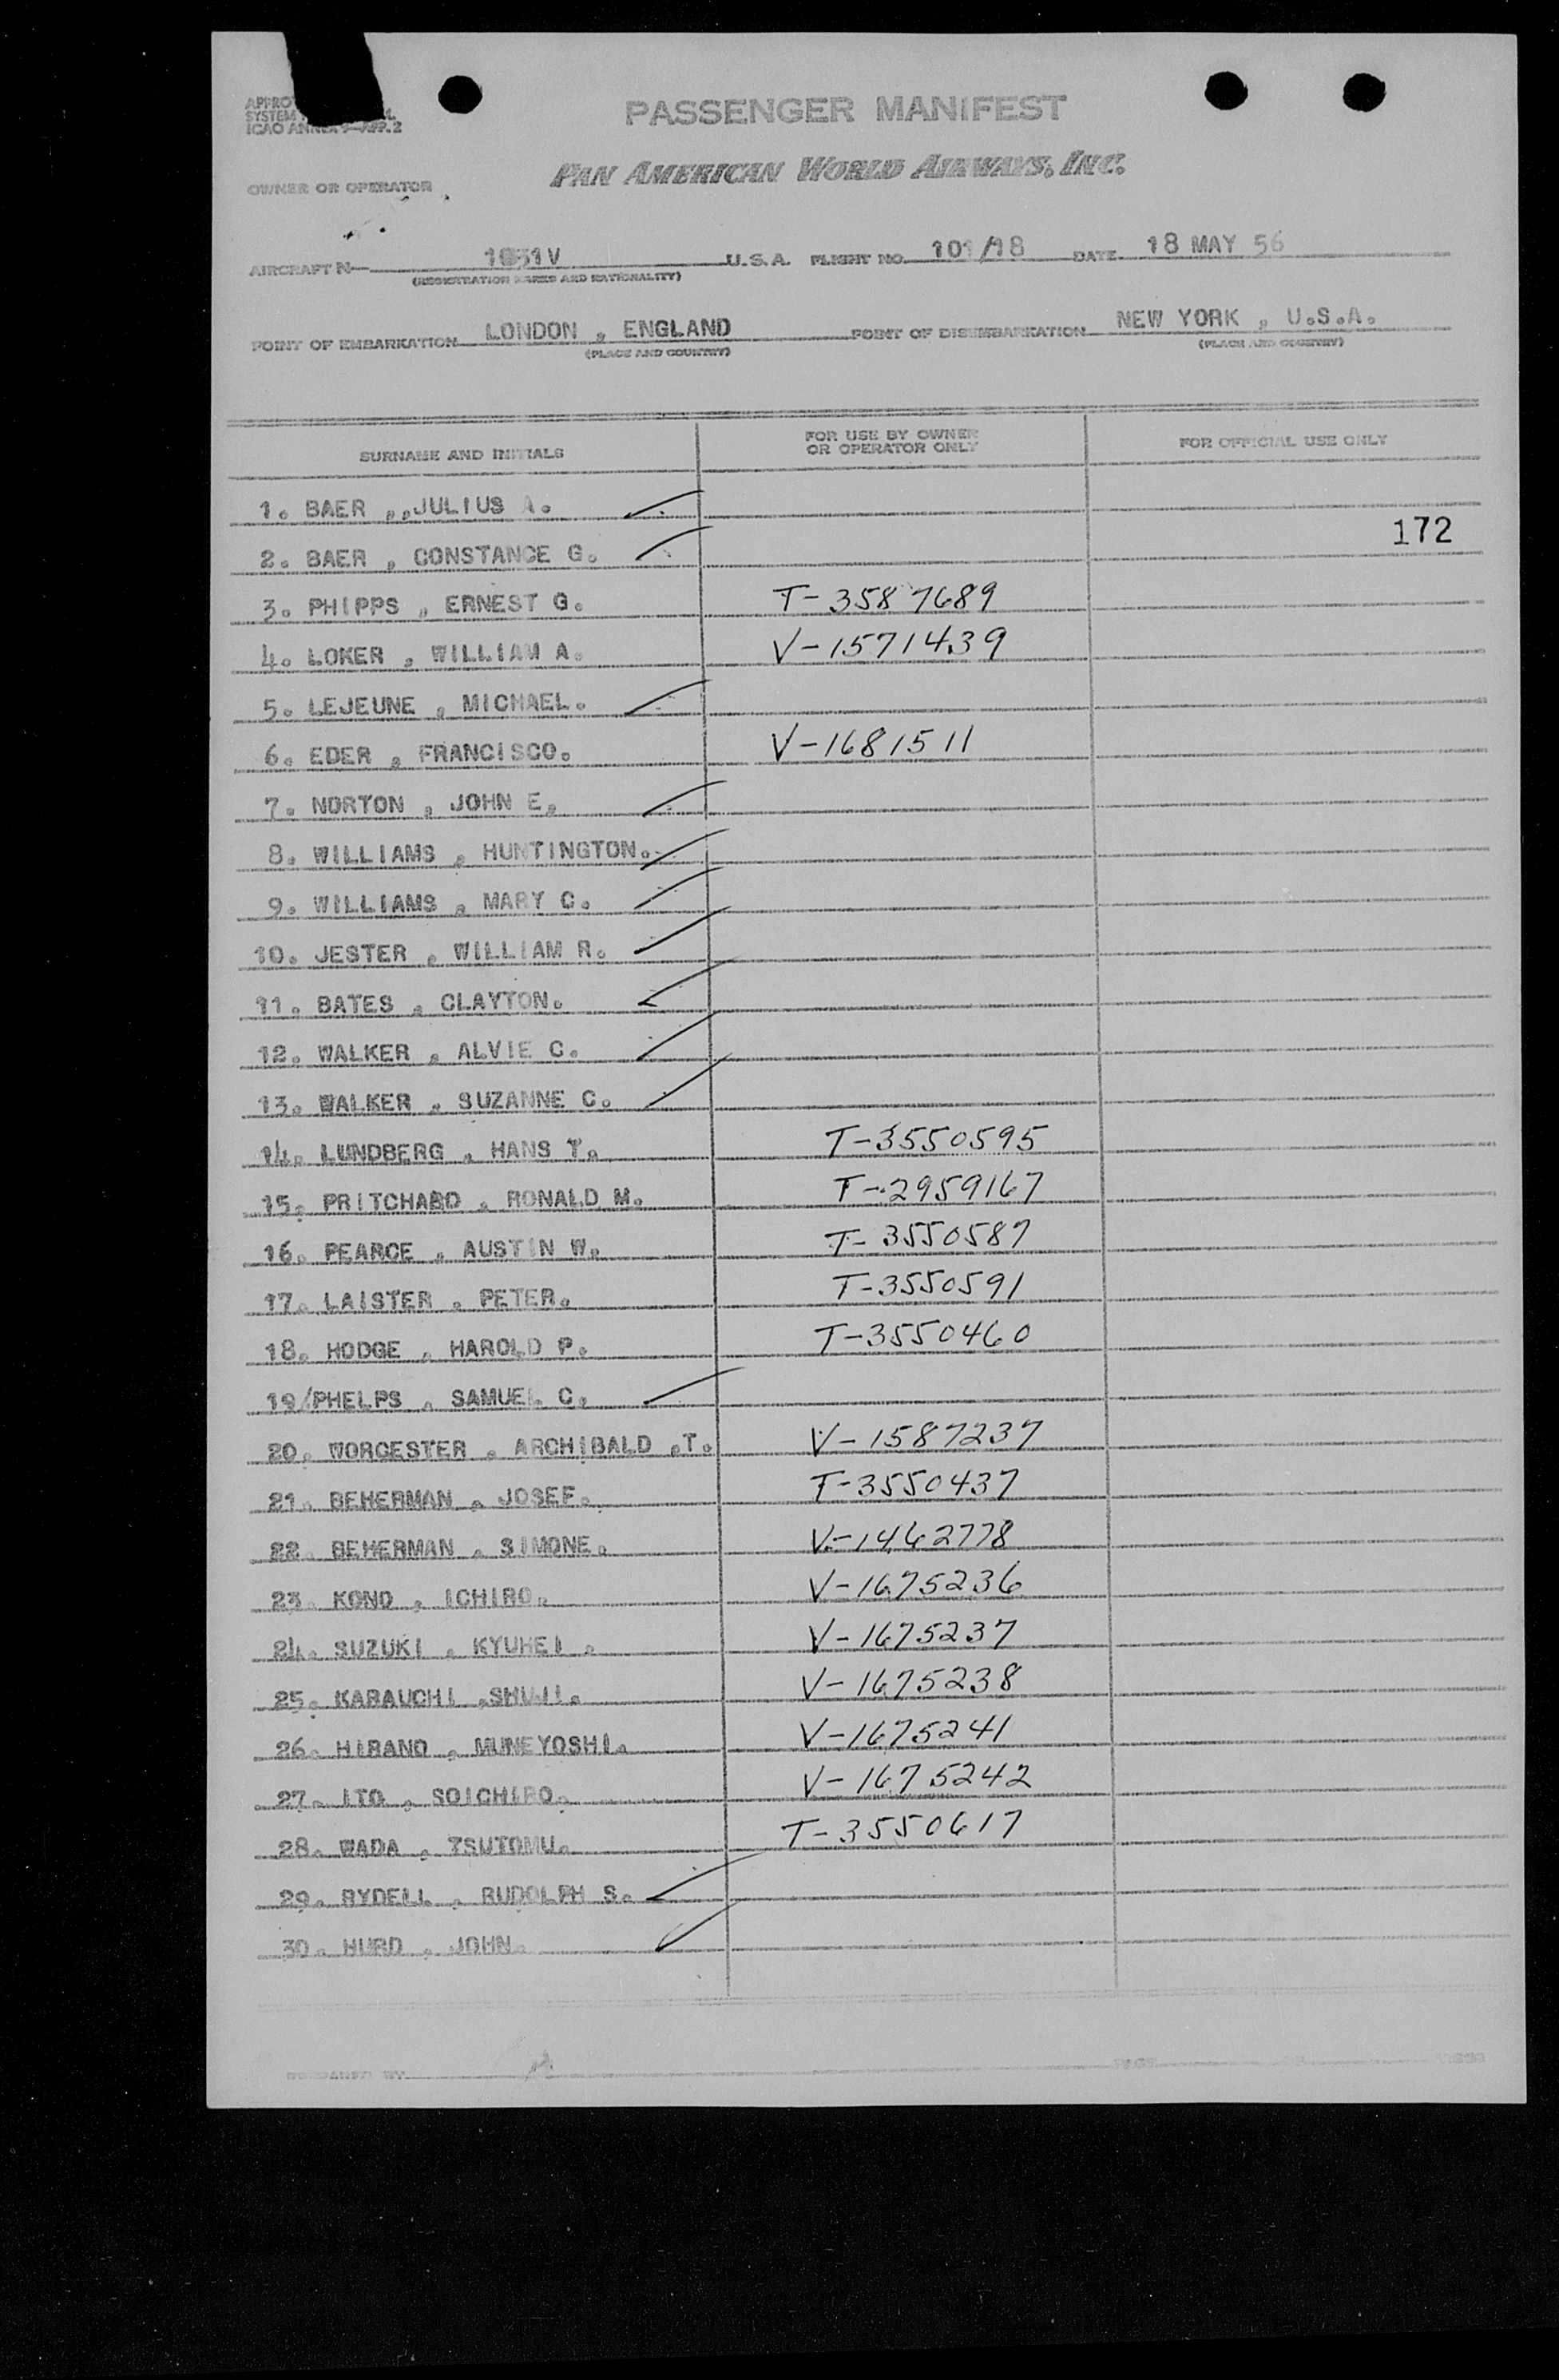 PASSENGER MANIFEST
ICAO ANNEX 9—APP. 2
PAN AMERICAN WORLD AIRWAYS, INC.
OWNER OR OPERATOR
AIRCRAFT N— 1031V U.S.A. FLIGHT NO. 101/18 DATE 18 MAY 56
(REGISTRATION MARKS AND NATIONALITY)
POINT OF EMBARKATION LONDON , ENGLAND POINT OF DISEMBARKATION NEW YORK , U.S.A.
(PLACE AND COUNTRY) (PLACE AND COUNTRY)
SURNAME AND INITIALS FOR USE BY OWNER OR OPERATOR ONLY FOR OFFICIAL USE ONLY
1. BAER ,,JULIUS A. ✓
172
2. BAER , CONSTANCE G. ✓
3. PHIPPS , ERNEST G. T-3587689
4. LOKER , WILLIAM A. V-1571439
5. LEJEUNE , MICHAEL. ✓
6. EDER , FRANCISCO. V-1681511
7. NORTON , JOHN E. ✓
8. WILLIAMS , HUNTINGTON. ✓
9. WILLIAMS , MARY C. ✓
10. JESTER , WILLIAM R. ✓
11. BATES , CLAYTON. ✓
12. WALKER , ALVIE C. ✓
13. WALKER , SUZANNE C. ✓
14. LUNDBERG , HANS T. T-3550595
15. PRITCHARD , RONALD M. T-2959167
16. PEARCE , AUSTIN W. T-3550587
17. LAISTER , PETER. T-3550591
18. HODGE , HAROLD P. T-3550460
19/PHELPS , SAMUEL C. ✓
20. WORCESTER , ARCHIBALD .T. V-1587237
21. BEHERMAN , JOSEF. T-3550437
22. BEHERMAN , SIMONE. V-1462778
23. KONO , ICHIRO. V-1675236
24. SUZUKI , KYUHEI . V-1675237
25. KARAUCHI ,SHUJI. V-1675238
26. HIRANO , MUNEYOSHI. V-1675241
27. ITO , SOICHIRO. V-1675242
28. WADA , TSUTOMU. T-3550617
29. RYDELL , RUDOLPH S. ✓
30. HURD , JOHN. ✓